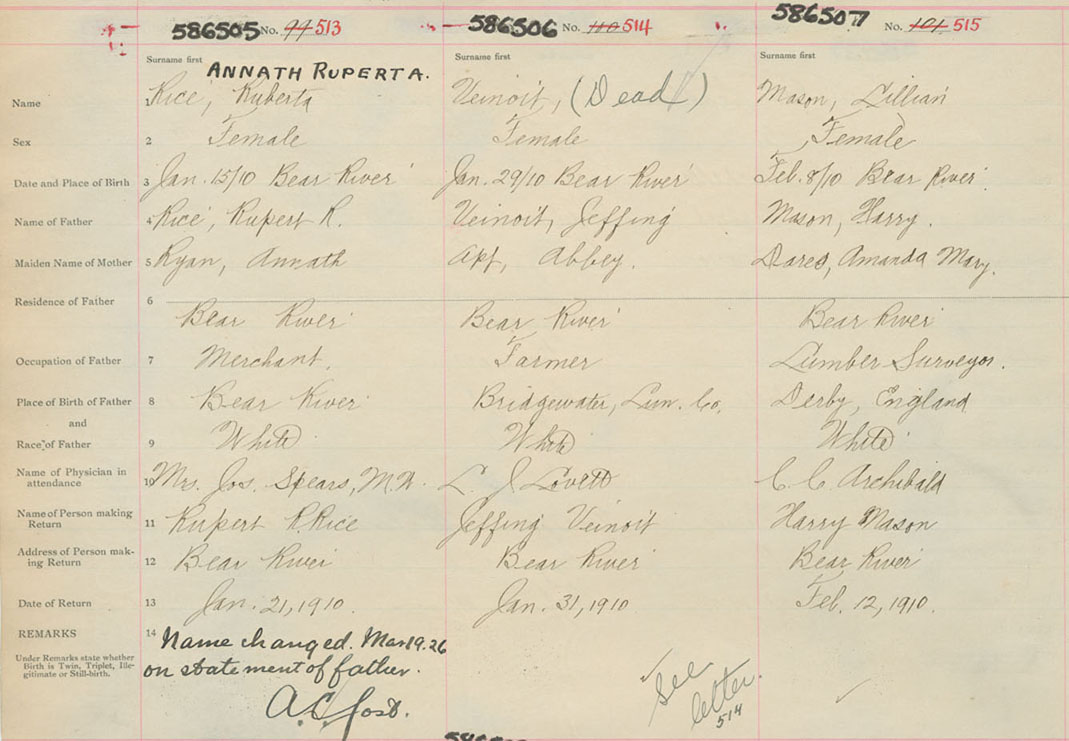 586505 No. 99 513
586506 No. 100 514
586507 No. 101 515
Surname first Surname first Surname first
ANNATH RUPERTA.
Name 1 Rice, Ruberta Veinoit, (Dead) Mason, Lillian
Sex 2 Female Female Female
Date and Place of Birth 3 Jan. 15/10 Bear River Jan. 29/10 Bear River Feb. 8/10 Bear River
Name of Father 4 Rice, Rupert R. Veinoit, Jeffing Mason, Harry.
Maiden Name of Mother 5 Ryan, Annath Apt, Abbey. Amanda Mary.
Residence of Father 6
Bear River Bear River Bear River
Occupation of Father 7 Merchant. Farmer Lumber Surveyor.
Place of Birth of Father 8 Bear River Bridgewater, Lun. Co. Derby, England
and
Race of Father 9 White White White
Name of Physician in
attendance 10 Mrs. Jos. Spears, L. J. Lovett C. C. Archibald
Name of Person making
Return 11 Rupert R. Rice Jeffing Veinoit Harry Mason
Address of Person mak-
ing Return 12 Bear River Bear River Bear River
Date of Return 13 Jan. 21, 1910. Jan. 31, 1910. Feb. 12, 1910.
REMARKS 14 Name changed. Mar 19. 26
Under Remarks state whether
Birth is Twin, Triplet, Ille-
gitimate or Still-birth.
on statement of father.
A.C. Jost.
See
letter.
514